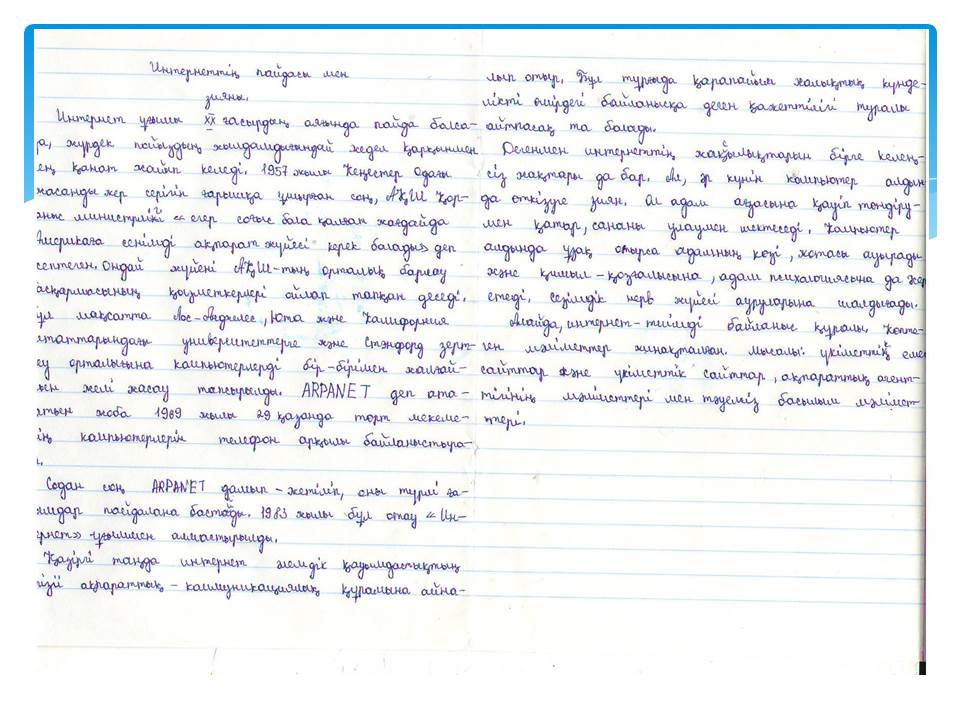 Интернеттің пайдасы мен
зияны.
Интернет ұғымы XX ғасырдың аяғында пайда болса-
а, жүрдек пойыздың жылдамдығындай жедел қарқынмен
ең қанат жайып келеді. 1957 жылы Кеңестер Одағы
жасанды жер серігін ғарышқа ұшырған соң, АҚШ Қор-
ныс министрлігі « егер соғыс бола қалған жағдайда
Америкаға сенімді ақпарат жүйесі керек болады» деп
септеген. Ондай жүйені АҚШ-тың орталық барлау
асқармасының қызметкерлері ойлап тапқан деседі.
ұл мақсатта Лос-Анджелес, Юта және Калифорния
штаттарындағы университеттерге және Стэнфорд зерт-
еу орталығына компьютерлерді бір-бірімен жалғай-
ын желі жасау тапсырылды. ARPANET деп ата-
атын жоба 1969 жылы 29 қазанда төрт мекеме-
ің компьютерлерін телефон арқылы байланыстыра-
ы.
Содан соң ARPANET дамып-жетіліп, оны түрлі ға-
лымдар пайдалана бастады. 1983 жылы бұл атау « Ин-
ернет» ұғымымен алмастырылды.
Қазіргі таңда интернет әлемдік қауымдастықтың
ізгі ақпараттық-коммуникациялық құрамына айна-
лып отыр. Бұл тұрғыда қарапайым халықтың күнде-
лікті өмірдегі байланысқа деген қажеттілігі туралы
айтпасақ та болады.
Дегенмен интернеттің жақсылықтарын бірге келең-
сіз жақтары да бар. Ал, әр күнін компьютер алдын-
да өткізуге зиян. Ол адам ағзасына қауіп төндіру-
мен қатар, сананы улаумен шектеседі. Компьютер
алдында ұзақ отырса адамның көзі, жотасы ауырады
және қимыл-қозғалысына, адам психологиясына да әсер
етеді. Сезімдік нерв жүйесі ауруларына шалдығады.
Алайда, интернет-тиімді байланыс құралы. Көпте-
ген мәліметтер жинақталған. Мысалы: үкіметтің емес
сайттар және үкіметтік сайттар, ақпараттық агент-
тігінің мәліметтері мен тәуелсіз басылым мәлімет-
тері.